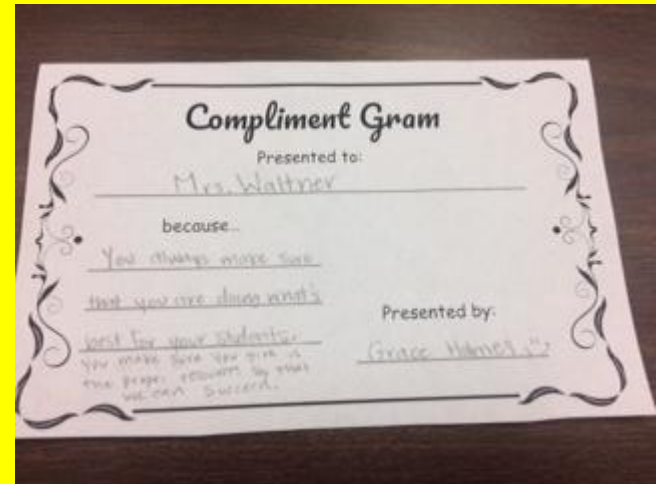 Compliment Gram
Presented to:
Mrs. Waltner
because..
You always make sure
that you are doing what's
best for your students.
You make sure you give
the proper so that
we can succeed.
Presented by:
Grace